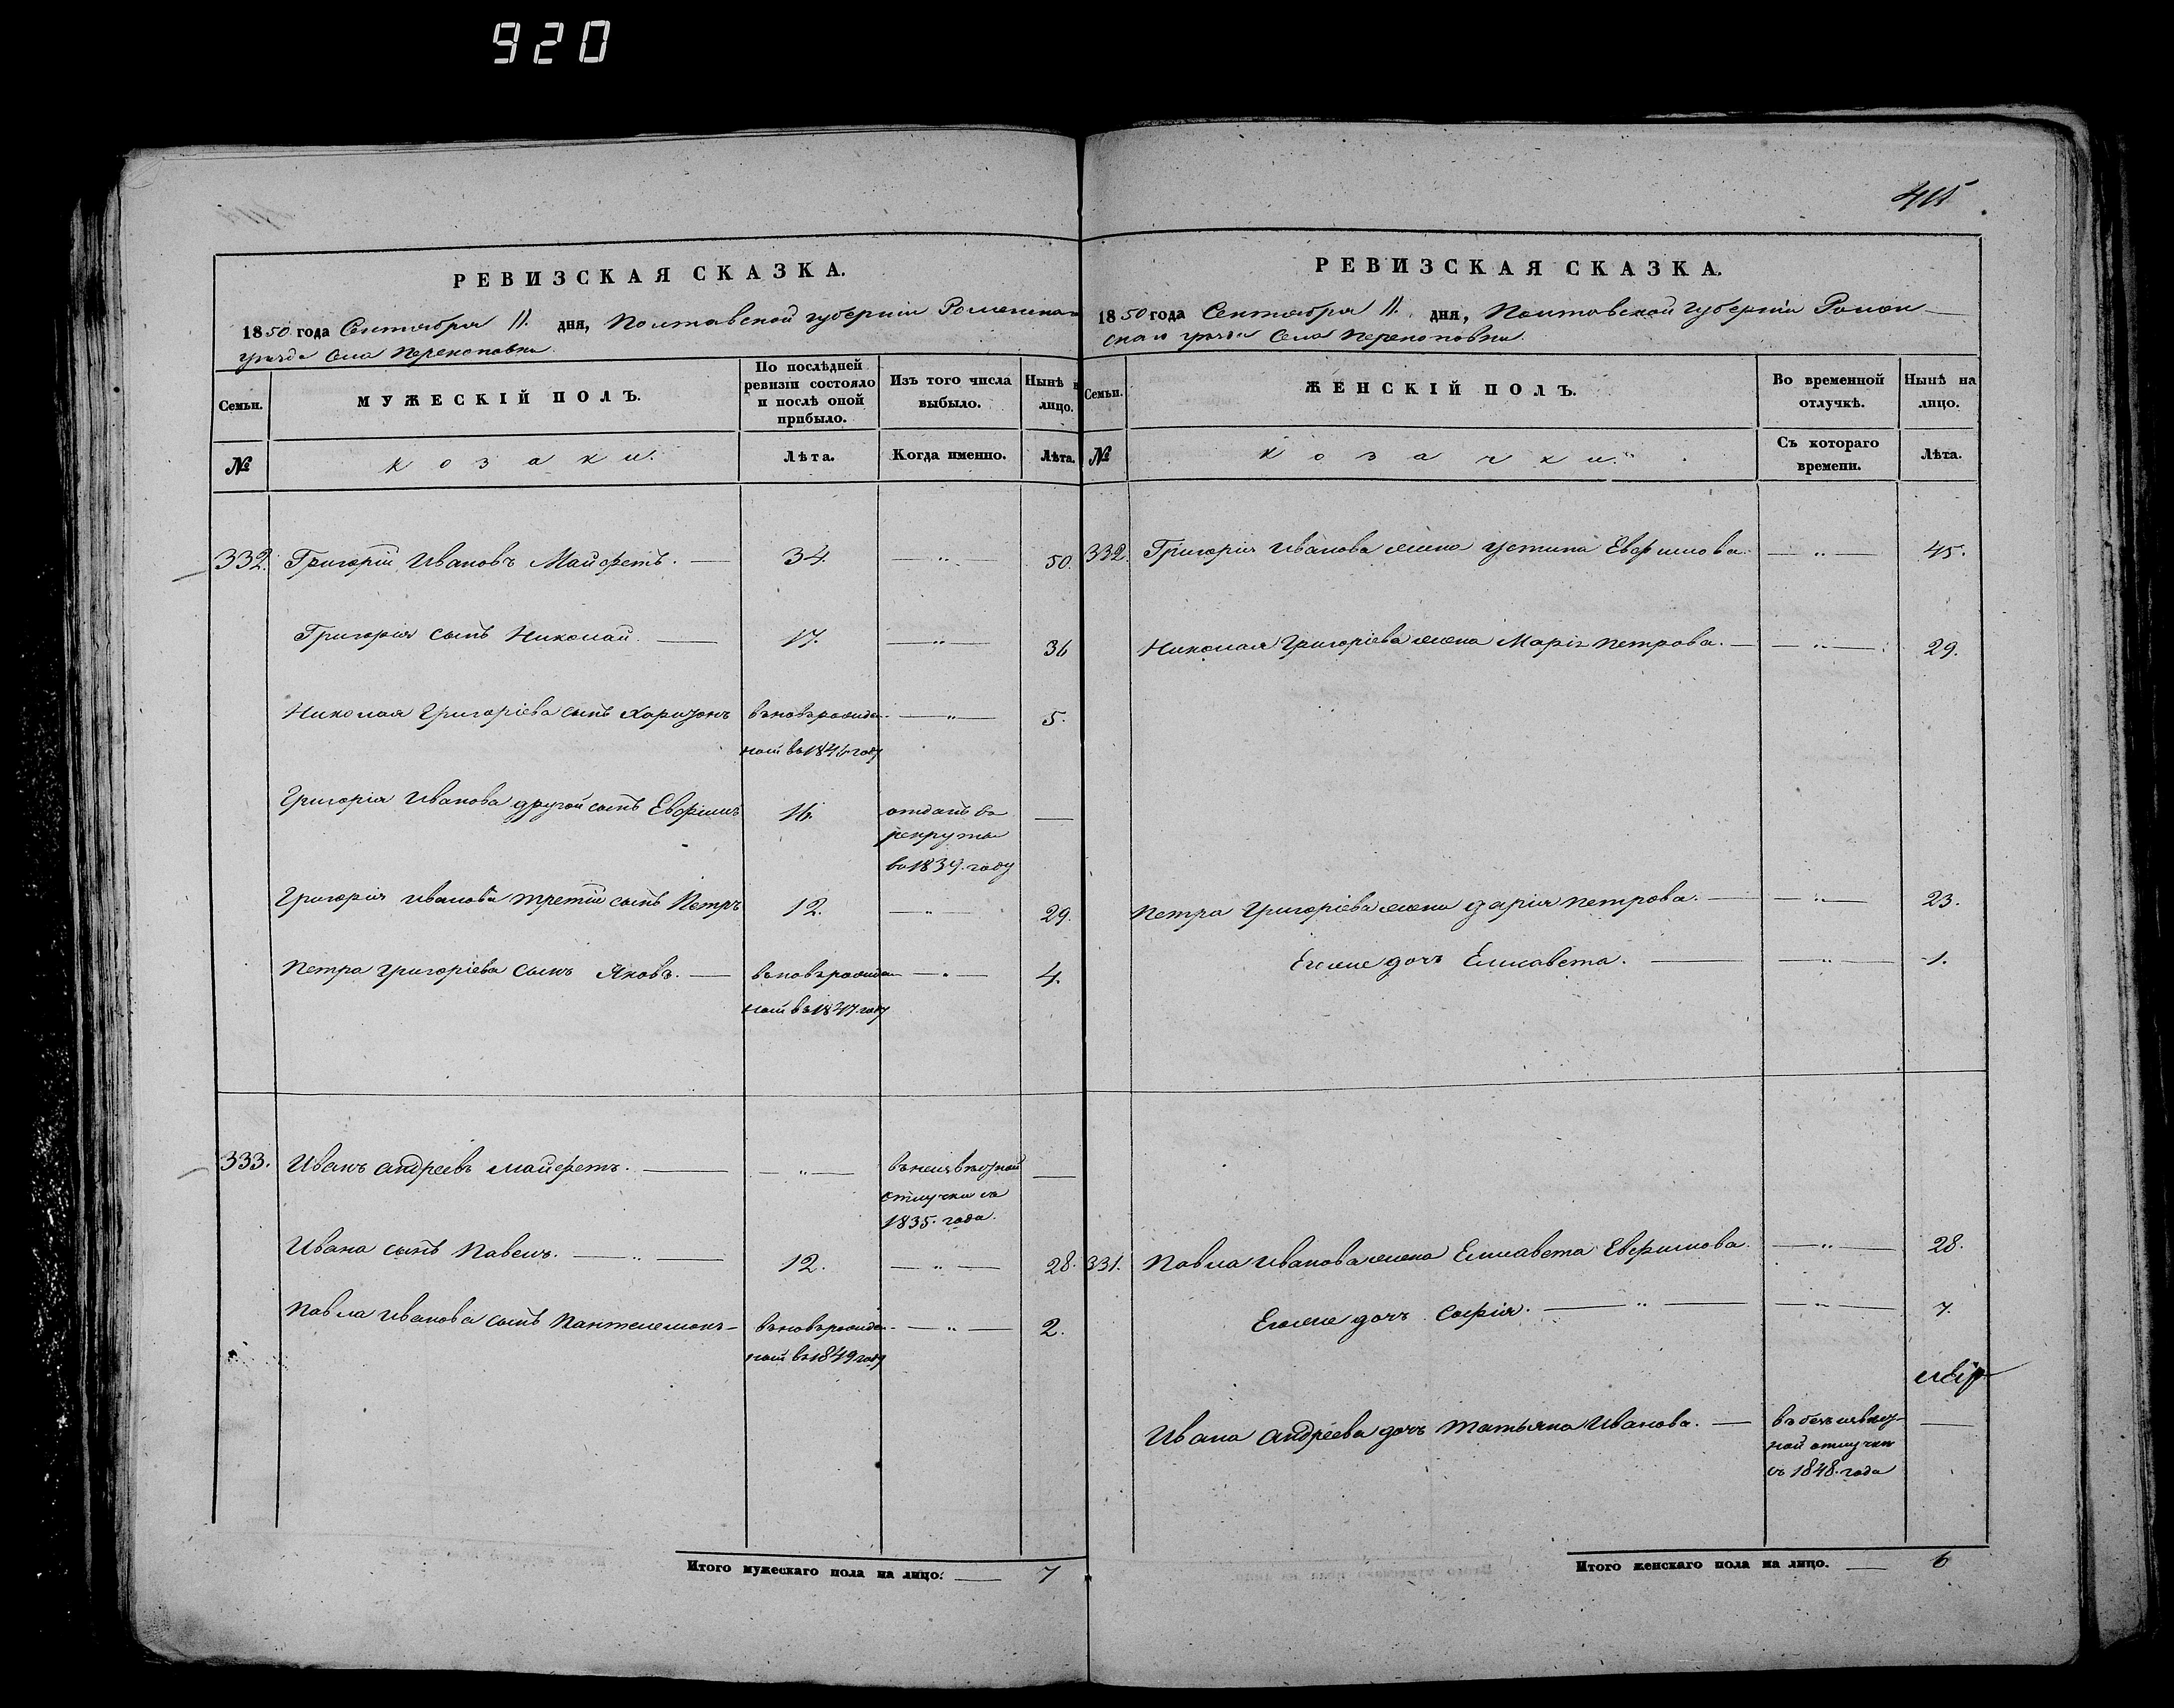 920
415
РЕВИЗСКАЯ СКАЗКА.
1850 года Сентября 11. дня, Полтавской губерніи Роменскаго
уѣзда Села Перекоповки.
Семьи.
МУЖЕСКІЙ ПОЛЪ.
По послѣдней ревизіи состояло и послѣ оной прибыло.
Изъ того числа выбыло.
Нынѣ на лицо.
№
козаки.
Лѣта.
Когда именно.
Лѣта.
332. Григорій Ивановъ Майфетъ. — 34. — „ — 50.
Григорія сынъ Николай. — 17. — „ — 36
Николая Григоріева сынъ Харитонъ вновърожде- — „ — 5.
ной въ 1846 году
Григорія Иванова другой сынъ Евфимъ 16. отданъ въ —
рекруты
въ 1839. году
Григорія Иванова третій сынъ Петръ 12. — „ — 29.
Петра Григоріева сынъ Яковъ. — вновърожде- — „ — 4.
ной въ 1847. году
333. Иванъ Андреевъ Майфетъ. — — „ — въ неизвѣстной —
отлучки съ
1835. года.
Ивана сынъ Павелъ. — „ — 12. — „ — 28.
Павла Иванова сынъ Пантелемонъ — вновърожде- — „ — 2.
ной въ 1849 году
Итого мужескаго пола на лицо: — 7
РЕВИЗСКАЯ СКАЗКА.
1850 года Сентября 11. дня, Полтавской Губерніи Ромен-
скаго уѣзда Села Перекоповки.
Семьи.
ЖЕНСКІЙ ПОЛЪ.
Во временной отлучкѣ.
Нынѣ на лицо.
№
козачки.
Съ котораго времени.
Лѣта.
332. Григорія Иванова жена Устина Евфимова. — „ — 45.
Николая Григоріева жена Марія Петрова. — — „ — 29.
Петра Григоріева жена Дарія Петрова. — — „ — 23.
Егоже дочь Елисавета. — — „ — 1.
331. Павла Иванова жена Елисавета Евфимова. — „ — 28.
Егоже дочь Софія. — „ — — „ — 7.
Ивана Андреева дочь Татьяна Иванова. —
ной отлучки
съ 1848. года
Итого женскаго пола на лицо. — 6